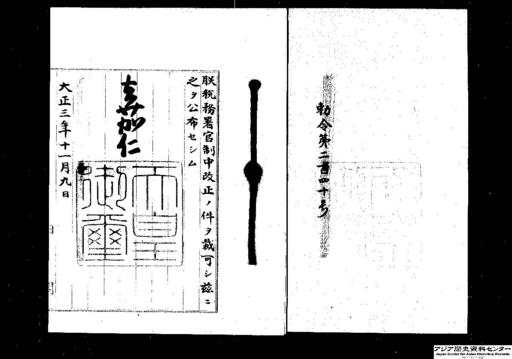 勅令第二百四十号
朕税務署官制中改正ノ件ヲ裁可シ茲ニ
之ヲ公布セシム
嘉仁
天皇御璽
大正三年十一月九日
アジア歴史資料センター
Japan Center for Asian Historical Records